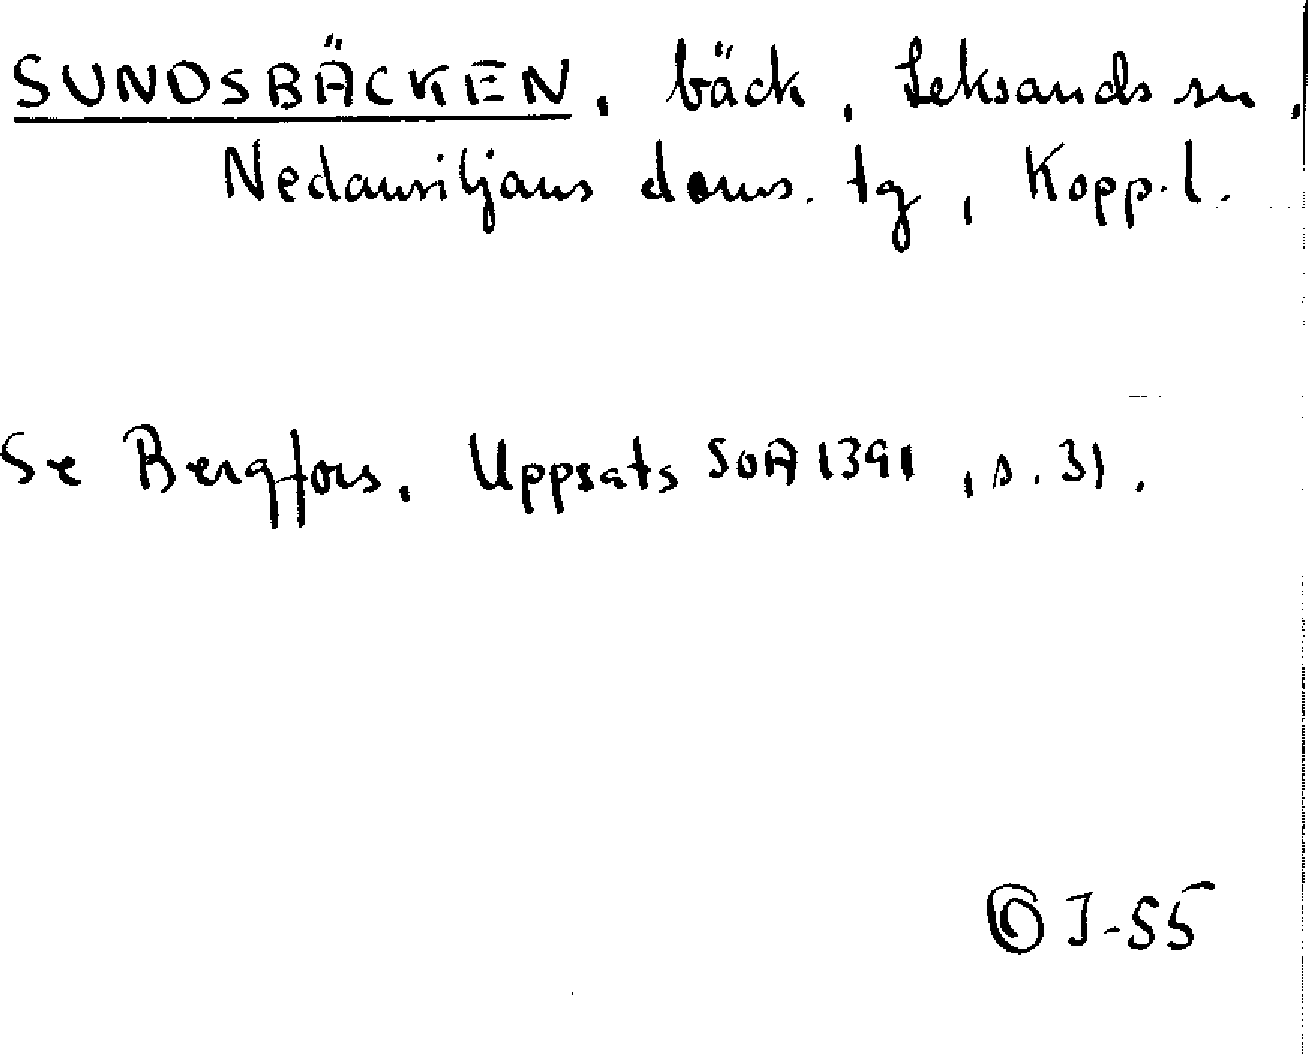 SUNDSBÄCKEN, bäck, Leksands sn,
Nedansiljans doms. tg, Kopp.l.
Se Bergfors, Uppsats SOA 1391, s. 31.
J-55